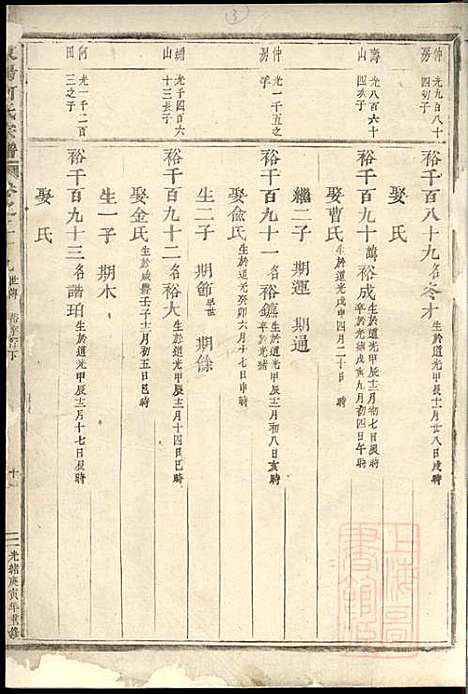 仲房
光九百八十四幼子
裕千百八十九名冬才生於道光甲辰十二月廿八日戌時
娶 氏
海山
光八百六十四次子
裕千百九十諱裕成生於道光甲辰十二月初七日辰時卒於光緒戊寅九月初四日午時
娶曹氏生於道光戊申四月二十日 時
繼二子 期運 期通
仲房
光一千五之子
裕千百九十一名裕鑣生於道光甲辰十二月初八日亥時卒於光緒
娶俞氏生於道光癸卯六月十七日申時
生二子 期節早世 期餘
湖山
光千四百六十三長子
裕千百九十二名裕大生於道光甲辰十二月十四日巳時
娶金氏生於咸豐壬子十二月初五日巳時
生一子 期木
何田
光一千二百三之子
裕千百九十三名諧珀生於道光甲辰十二月十七日辰時
娶 氏
何氏宗譜
世傳
十
光緒庚寅年重修
上海圖書館藏
3